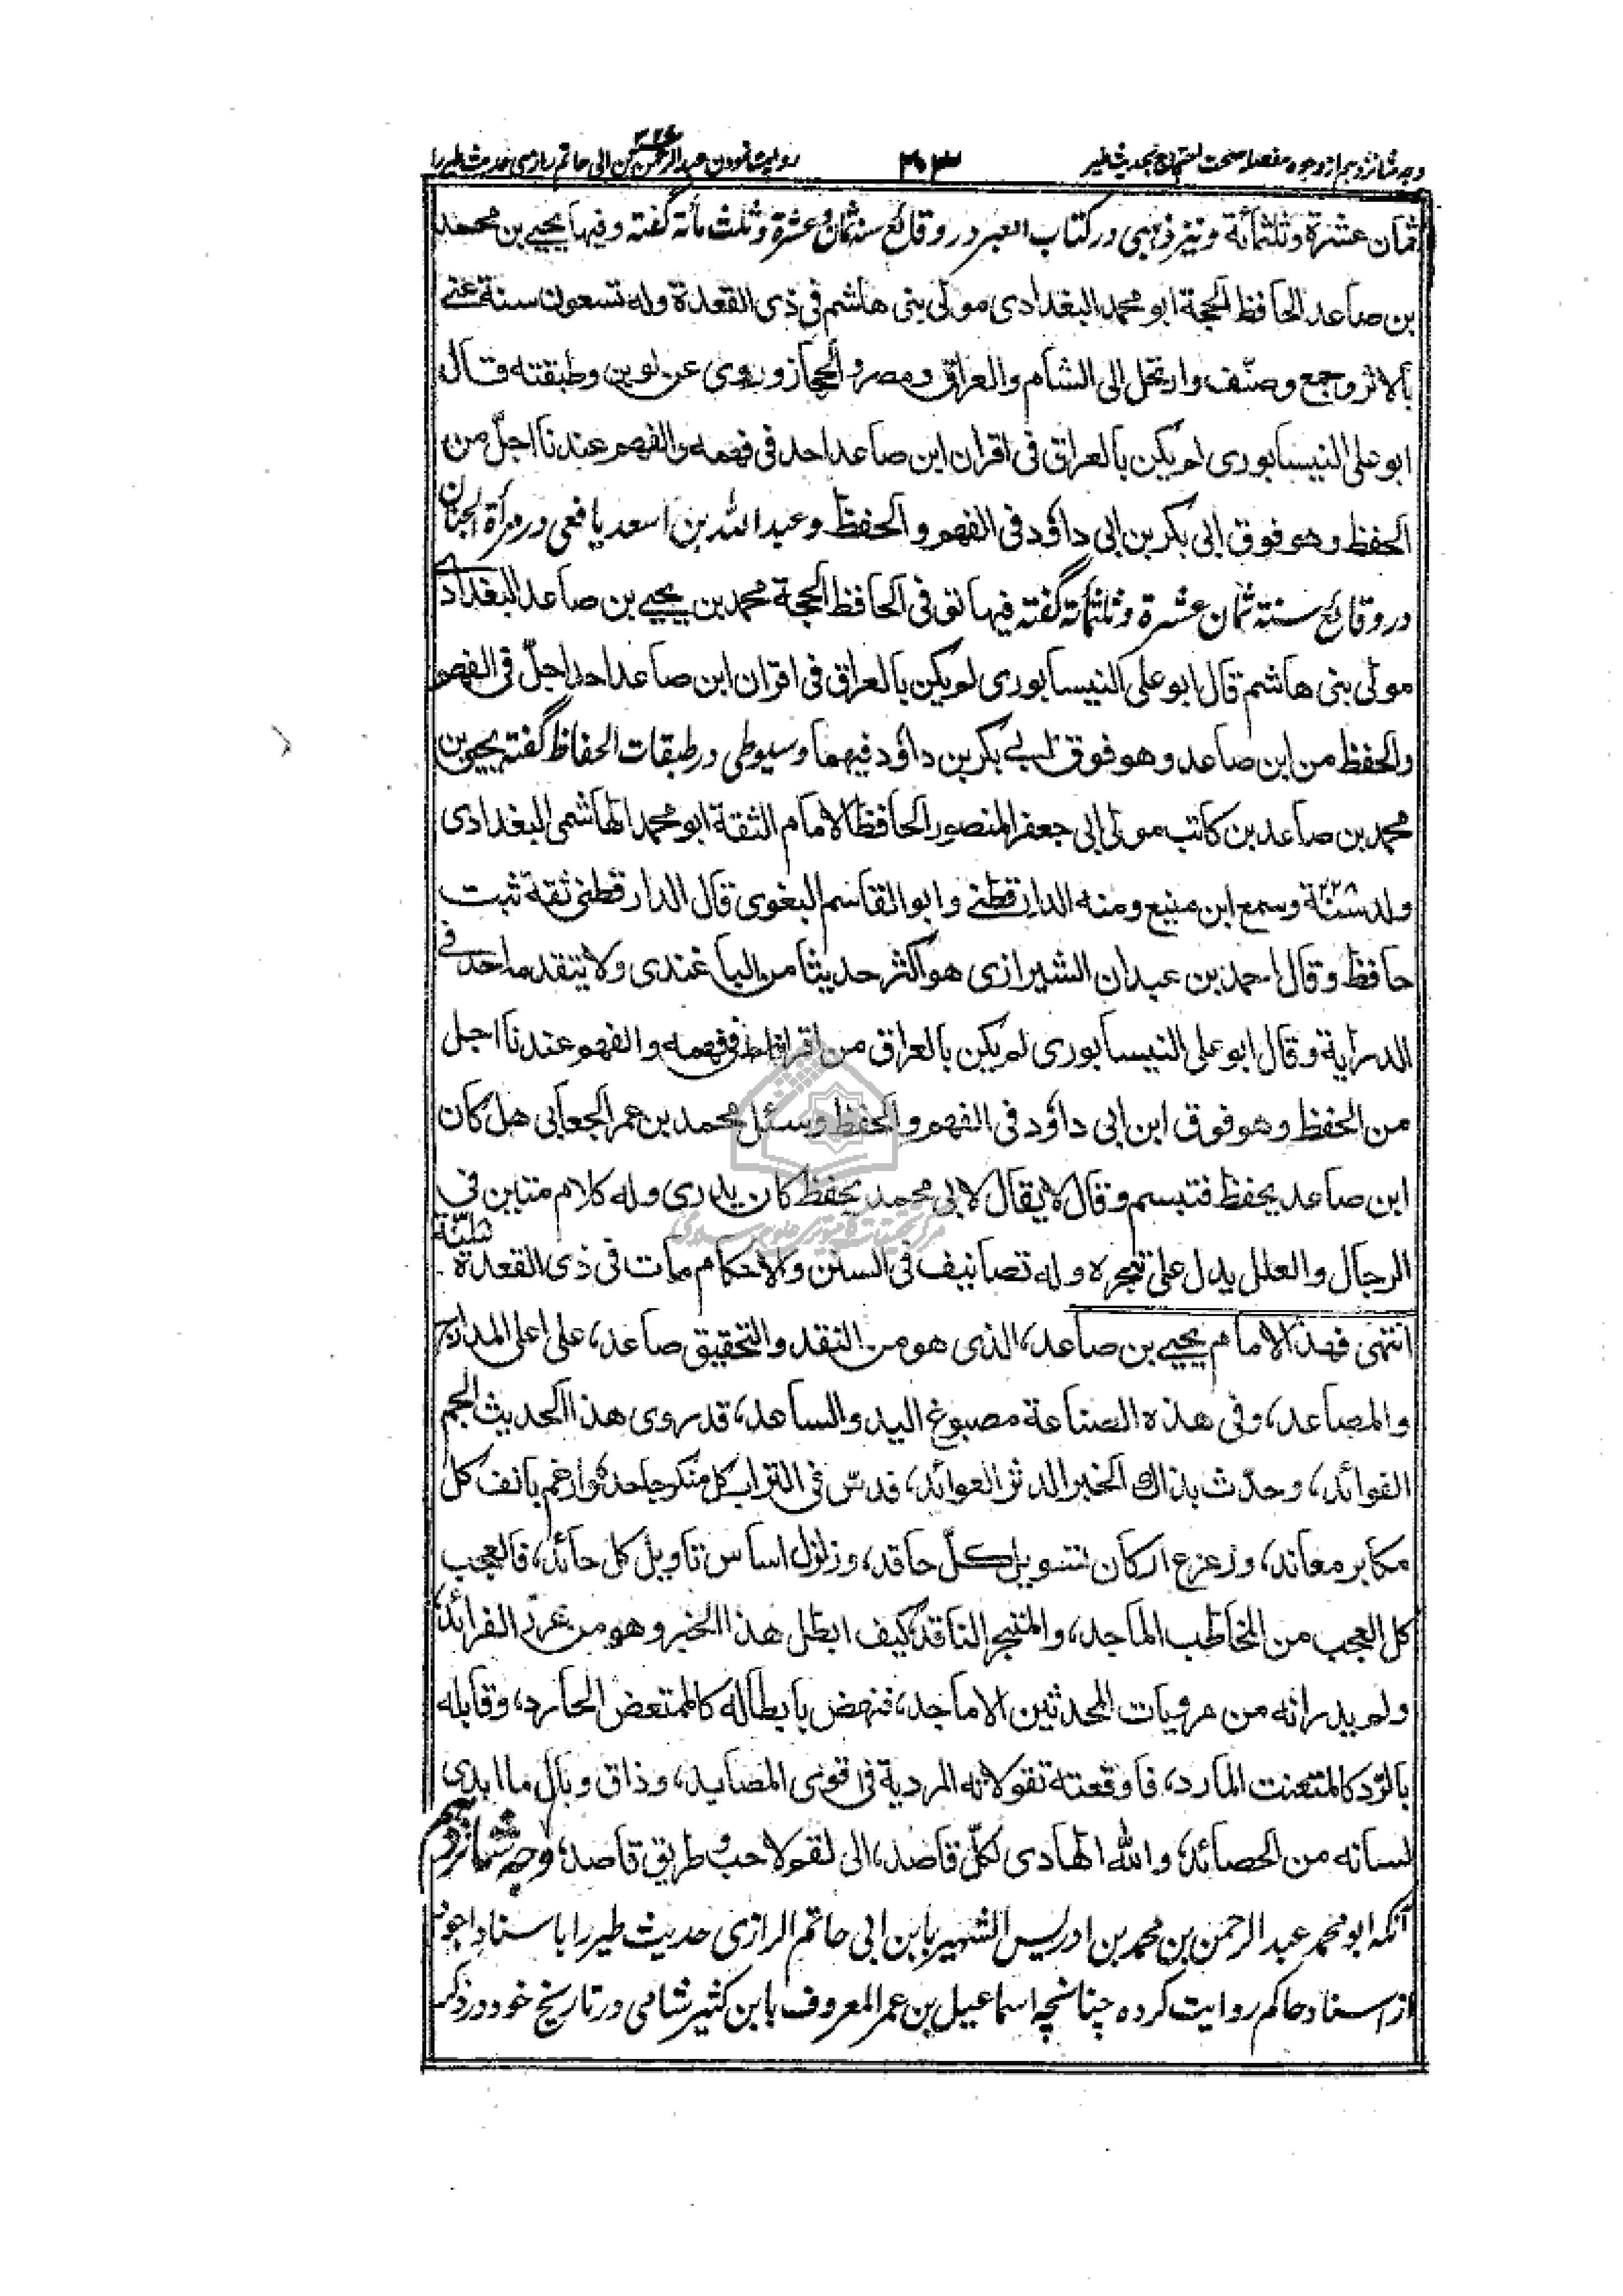 وجه شانزدهم از وجوه مفصله صحت احتجاج بحدیث طیر
۲۰۳
روایت نمودن عبدالرحمن بن ابی حاتم رازی حدیث طیر را
ثمان عشرة وثلثمائة ونیز ذهبی در کتاب العبر در وقائع سنة ثمان وعشرة وثلث مائه گفته وفیها یحیی بن محمد
بن صاعد الحافظ الحجة ابو محمد البغدادی مولی بنی هاشم فی ذی القعدة وله تسعون سنة عنی
بالاثر وجمع وصنّف وارتحل الی الشام والعراق ومصر والحجاز وروی عن لوین وطبقته قال
ابو علی النیسابوری لم یکن بالعراق فی اقران ابن صاعد احد فی فهمه والفهم عندنا اجلّ من
الحفظ وهو فوق ابی بکر بن ابی داؤد فی الفهم والحفظ وعبد الله بن اسعد یافعی در مرآة الجنان
در وقائع سنة ثمان عشرة وثلثمائة گفته فیها توفی الحافظ الحجة محمد بن یحیی بن صاعد البغدادی
مولی بنی هاشم قال ابو علی النیسابوری لم یکن بالعراق فی اقران ابن صاعد احد اجلّ فی الفهم
والحفظ من ابن صاعد وهو فوق ابی بکر بن داؤد فیهما وسیوطی در طبقات الحفاظ گفته یحیی بن
محمد بن صاعد بن کاتب مولی ابی جعفر المنصور الحافظ الامام الثقة ابو محمد الهاشمی البغدادی
ولد سنة ۲۲۸ وسمع ابن منیع ومنه الدارقطنی وابو القاسم البغوی قال الدارقطنی ثقة ثبت
حافظ وقال احمد بن عبدان الشیرازی هو اکثر حدیثا من الباغندی ولا یتقدمه احد فی
الدرایة وقال ابو علی النیسابوری لم یکن بالعراق من اقرانه احد فی فهمه والفهم عندنا اجل
من الحفظ وهو فوق ابن ابی داؤد فی الفهم والحفظ وسئل محمد بن عمر الجعابی هل کان
ابن صاعد یحفظ فتبسم وقال لا یقال لابی محمد یحفظ کان یدری وله کلام متین فی
الرجال والعلل یدل علی تبحره وله تصانیف فی السنن والاحکام مات فی ذی القعدة
انتهی فهذا الامام یحیی بن صاعد، الذی هو من النقد والتحقیق صاعد، علی اعلی المدارج
والمصاعد، وفی هذه الصناعة مصبوغ الید والساعد، قد روی هذا الحدیث الجم
الفوائد، وحدّث بذاک الخبر الدثر العوائد، فدسّ فی التراب کل منکر جاحد، وارغم بانف کل
مکابر معاند، وزعزع ارکان تسویل کلّ حاقد، وزلزل اساس تاویل کل حائد، فالعجب
کل العجب من المخاطب الماجد، والمتبحر الناقد، کیف ابطل هذا الخبر وهو من غرر الفرائد،
ولم یدر انه من مرویات المحدثین الاماجد، فنهض بابطاله کالممتعض الحارد، وقابله
بالرّد کالمتعنت المارد، فاوقعته تقولاته المردیة فی اقوی المصاید، وذاق وبال ما ابدی
لسانه من الحصائد، والله الهادی لکلّ قاصد، الی لقم لاحب وطریق قاصد، وجه شانزدهم
آنکه ابو محمد عبد الرحمن بن محمد بن ادریس الشهیر بابن ابی حاتم الرازی حدیث طیر را با سناد اجود
از اسناد حاکم روایت کرده چنانچه اسماعیل بن عمر المعروف بابن کثیر شامی در تاریخ خود در ذکر